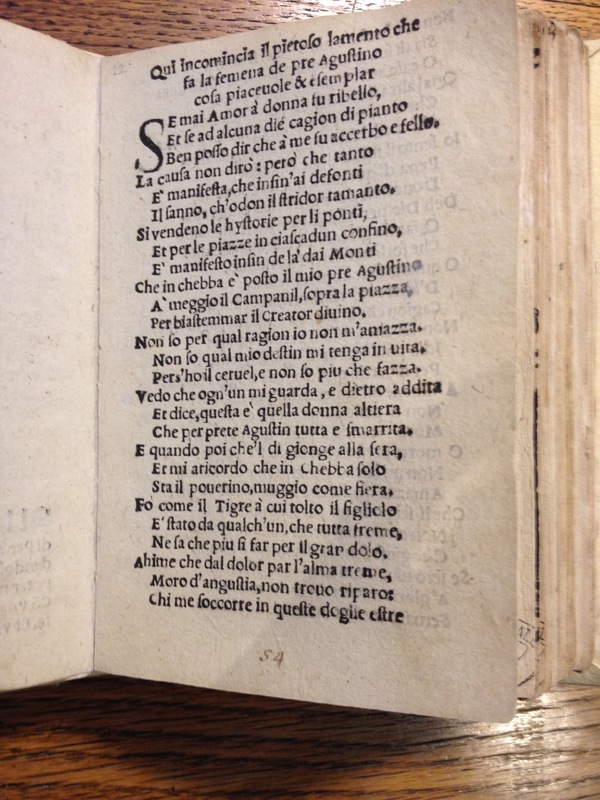 Qui incomincia il pietoso lamento che
fa la femena de pre Agustino
cosa piaceuole & esemplar
SE mai Amor à donna fu ribello,
Et se ad alcuna die cagion di pianto
Ben posso dir che à me fu accerbo e fello.
La causa non dirò: però che tanto
E' manifesta, che insin'ai defonti
Il sanno, ch'odon il stridor tamanto.
Si vendeno le hystorie per li ponti,
Et per le piazze in ciascadun confino,
E' manifesto insin de la' dai Monti
Che in chebba è posto il mio pre Agustino
A' meggio il Campanil, sopra la piazza,
Per biastemmar il Creator diuino.
Non so per qual ragion io non m'amazza.
Non so qual mio destin mi tenga in uita.
Pers'ho il ceruel, e non so piu che fazza.
Vedo che ogn'un mi guarda, e dietro addita
Et dice, questa è quella donna altiera
Che per prete Agustin tutta e smarrita.
E quando poi che'l di gionge alla sera,
Et mi aricordo che in Chebba solo
Sta il pouerino, muggio come fiera.
Fo come il Tigre à cui tolto il figliolo
E' stato da qualch'un, che tutta freme,
Ne sa che piu si far per il gran dolo.
Ahime che dal dolor par l'alma treme,
Moro d'angustia, non trouo riparo:
Chi me soccorre in queste doglie estre
54